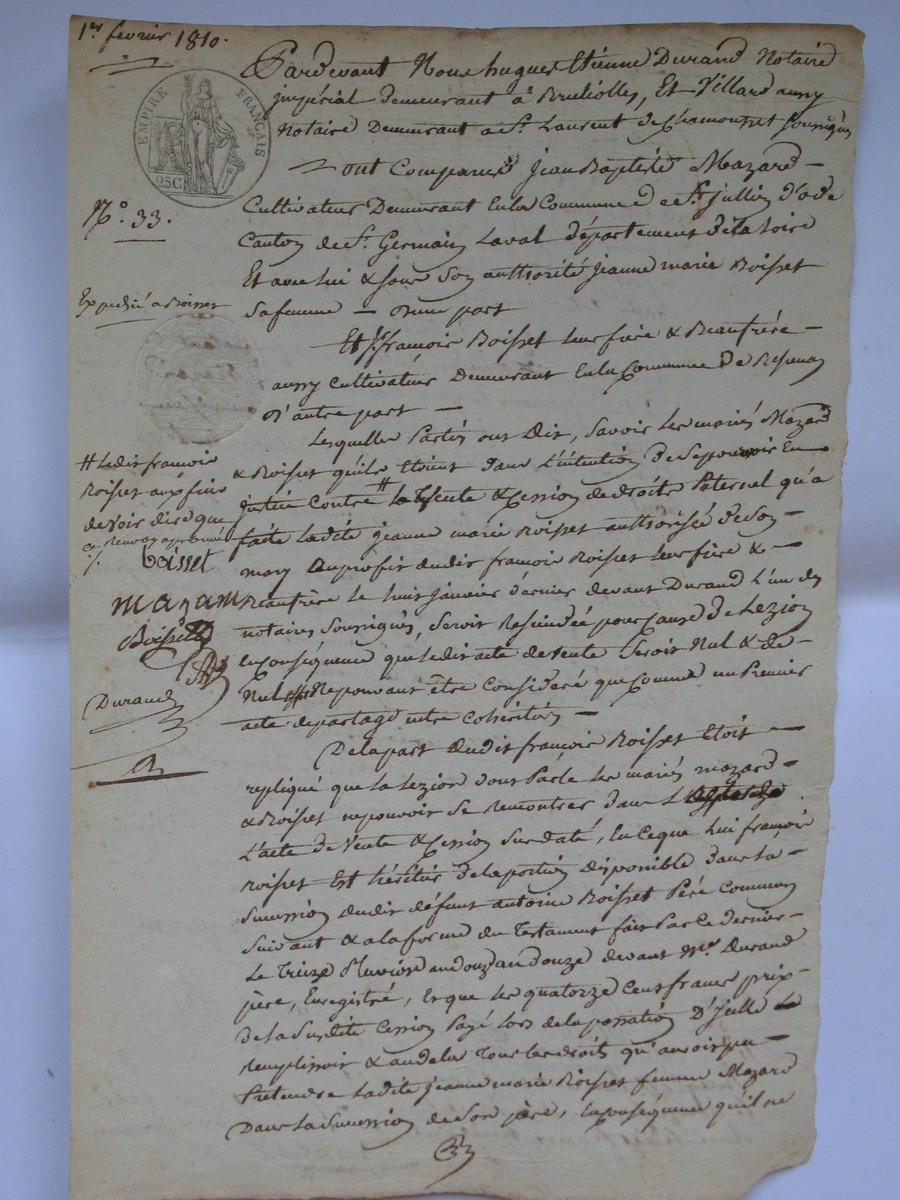 1er fevrier 1810.
EMPIRE FRANÇAIS
25C
No. 33.
Expedié a Boisset
# Ledit françois
Boisset aux fins
de voir dire que
ce Renvoy approuvé
boisset
mazam
Boisset
Durand
Pardevant Nous hugues Etienne Durand Notaire
jmpérial demeurant a Brulliolles, Et Villard aussy
Notaire Demeurant a St. Laurent de Chamousset soussignés
ont Comparus jean Baptiste Mazard
Cultivateur Demeurant En la Commune de St. jullien d'odde
Canton de St. Germain Laval département de la Loire
Et avec lui & sous son authorité jeanne marie Boisset
sa femme — d'une part
Et françois Boisset leur frère & Beaufrère —
aussy Cultivateur Demeurant En la Commune de
D'autre part —
Lesquelles Parties ont Dit, savoir les mariés Mazard
& Boisset qu'ils Etoient dans L'intention de se pourvoir En
justice Contre # la Vente & Cession de droits Paternel qu'a
faite ladite jeanne marie Boisset authorisée de son
mary au profit dudit françois Boisset leur frère &
Beaufrère le huit janvier dernier devant Durand L'un des
notaires soussignés, seroit Rescindée pour Cause de Lezion
En Conséquence que ledit acte de vente seroit Nul & de
Nul Ne pouvant être Consideré que Comme un Premier
acte de partage entre Cohéritiers —
De la part dudit françois Boisset Etoit —
repliqué que la Lezion dont Parle les mariés mazard —
& Boisset ne pouvoir se Rencontrer dans
L'acte de Vente & Cession sus daté, En ce que Lui françois
Boisset Est héritier de la portion disponible dans la
succession dudit défunt antoine Boisset Père Commun
suivant & a la forme du Testament fait Par ce dernier
Le Treize Pluviose an douze devant Me. Durand
père, Enregistré, Et que les quatorze Cent francs prix
De la susdite Cession Payé lors de la passation D'jcelle
remplissoit & au dela Tous les droits qu'auroit pu
Pretendre ladite jeanne marie Boisset femme Mazard
Dans la succession de son père, En Conséquence qu'il ne